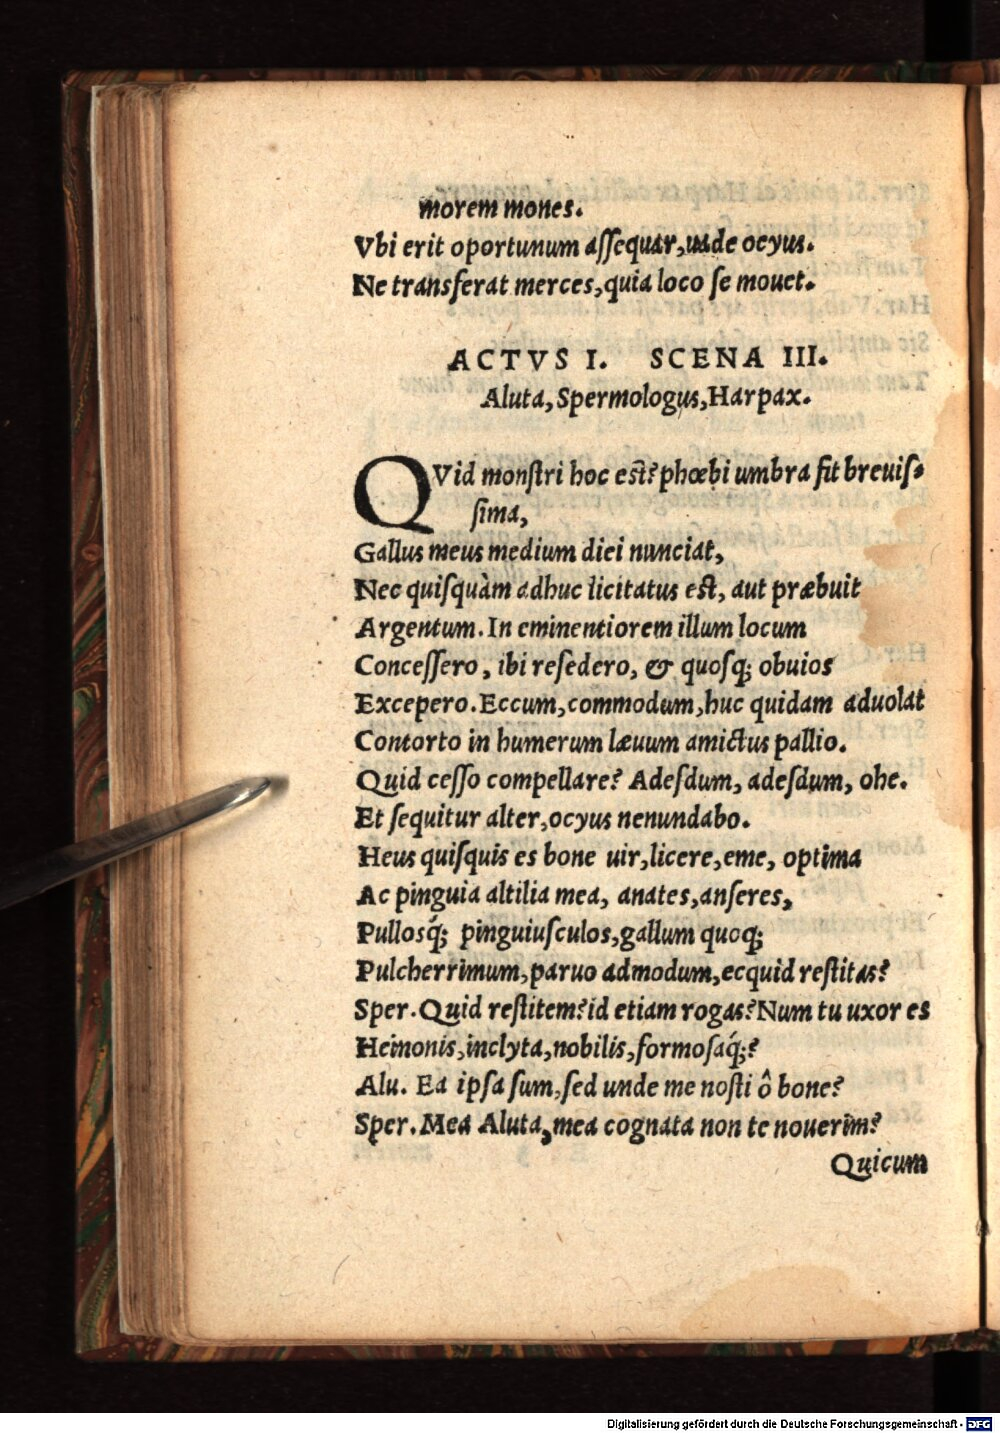 morem mones.
Vbi erit oportunum aſſequar, uade ocyus.
Ne transferat merces, quia loco ſe mouet.
ACTVS I. SCENA III.
Aluta, Spermologus, Harpax.
QVid monſtri hoc est? phœbi umbra fit breuiſ-
ſima,
Gallus meus medium diei nunciat,
Nec quiſquàm adhuc licitatus est, aut præbuit
Argentum. In eminentiorem illum locum
Conceſſero, ibi reſedero, & quoſq; obuios
Excepero. Eccum, commodum, huc quidam aduolat
Contorto in humerum læuum amictus pallio.
Quid ceſſo compellare? Adeſdum, adeſdum, ohe.
Et ſequitur alter, ocyus nenundabo.
Heus quiſquis es bone uir, licere, eme, optima
Ac pinguia altilia mea, anates, anſeres,
Pullosq́; pinguiuſculos, gallum quoq;
Pulcherrimum, paruo admodum, ecquid reſtitas?
Sper. Quid reſtitem? id etiam rogas? Num tu uxor es
Heimonis, inclyta, nobilis, formoſaq́;?
Alu. Ea ipſa ſum, ſed unde me noſti ô bone?
Sper. Mea Aluta, mea cognata non te nouerim?
Quicum
Digitalisierung gefördert durch die Deutsche Forschungsgemeinschaft - DFG